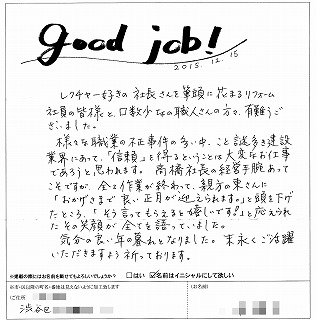 good job!
2015.12.15
レクチャー好きの社長さんを筆頭に花まるリフォーム
社員の皆様と、口数少なの職人さんの方々、有難うご
ざいました。
様々な職業の不正事件の多い中、こと謎多き建設
業界にあって、「信頼」を得るということは大変なお仕事
であろうと思われます。高橋社長の経営手腕あって
こそですが、全ての作業が終わって、親方の東さんに
「おかげさまで良い正月が迎えられます。」と頭を下げ
たところ、「そう言ってもらえると嬉しいです!」と応えられ
たその笑顔が全てを語っていました。
気分の良い年の暮れとなりました。末永くご活躍
いただきますよう祈っております。
※連載の際にはお名前を載せてもよろしいでしょうか? □はい ☑名前はイニシャルにして欲しい
ご住所
お名前
渋谷区